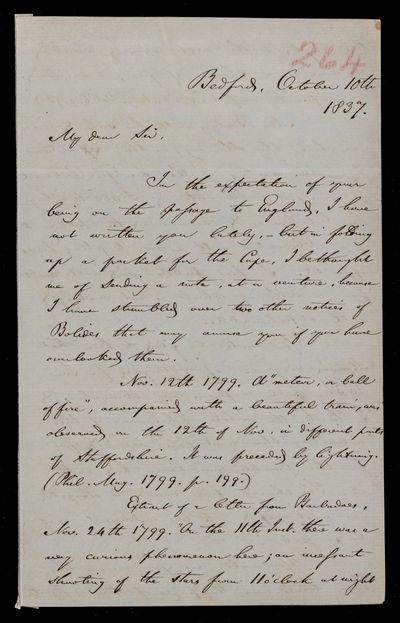 264
Bedford, October 10th
1837.
My dear Sir,
In the expectation of your
being on the passage to England, I have
not written you lately, - but in folding
up a packet for the Cape, I bethought
me of sending a note, at a venture, because
I have stumbled over two other notices of
Bolides that may amuse you if you have
overlooked them.
Nov. 12th 1799. A "meteor, or ball
of fire", accompanied with a beautiful train, was
observed on the 12th of Nov. in different parts
of Staffordshire. It was preceded by lightning.
(Phil. Mag. 1799. p. 199.)
Extract of a letter from Barbadoes,
Nov. 24th 1799. "On the 11th Inst. there was a
very curious phenomenon here; an incessant
shooting of the stars from 11 o'clock at night